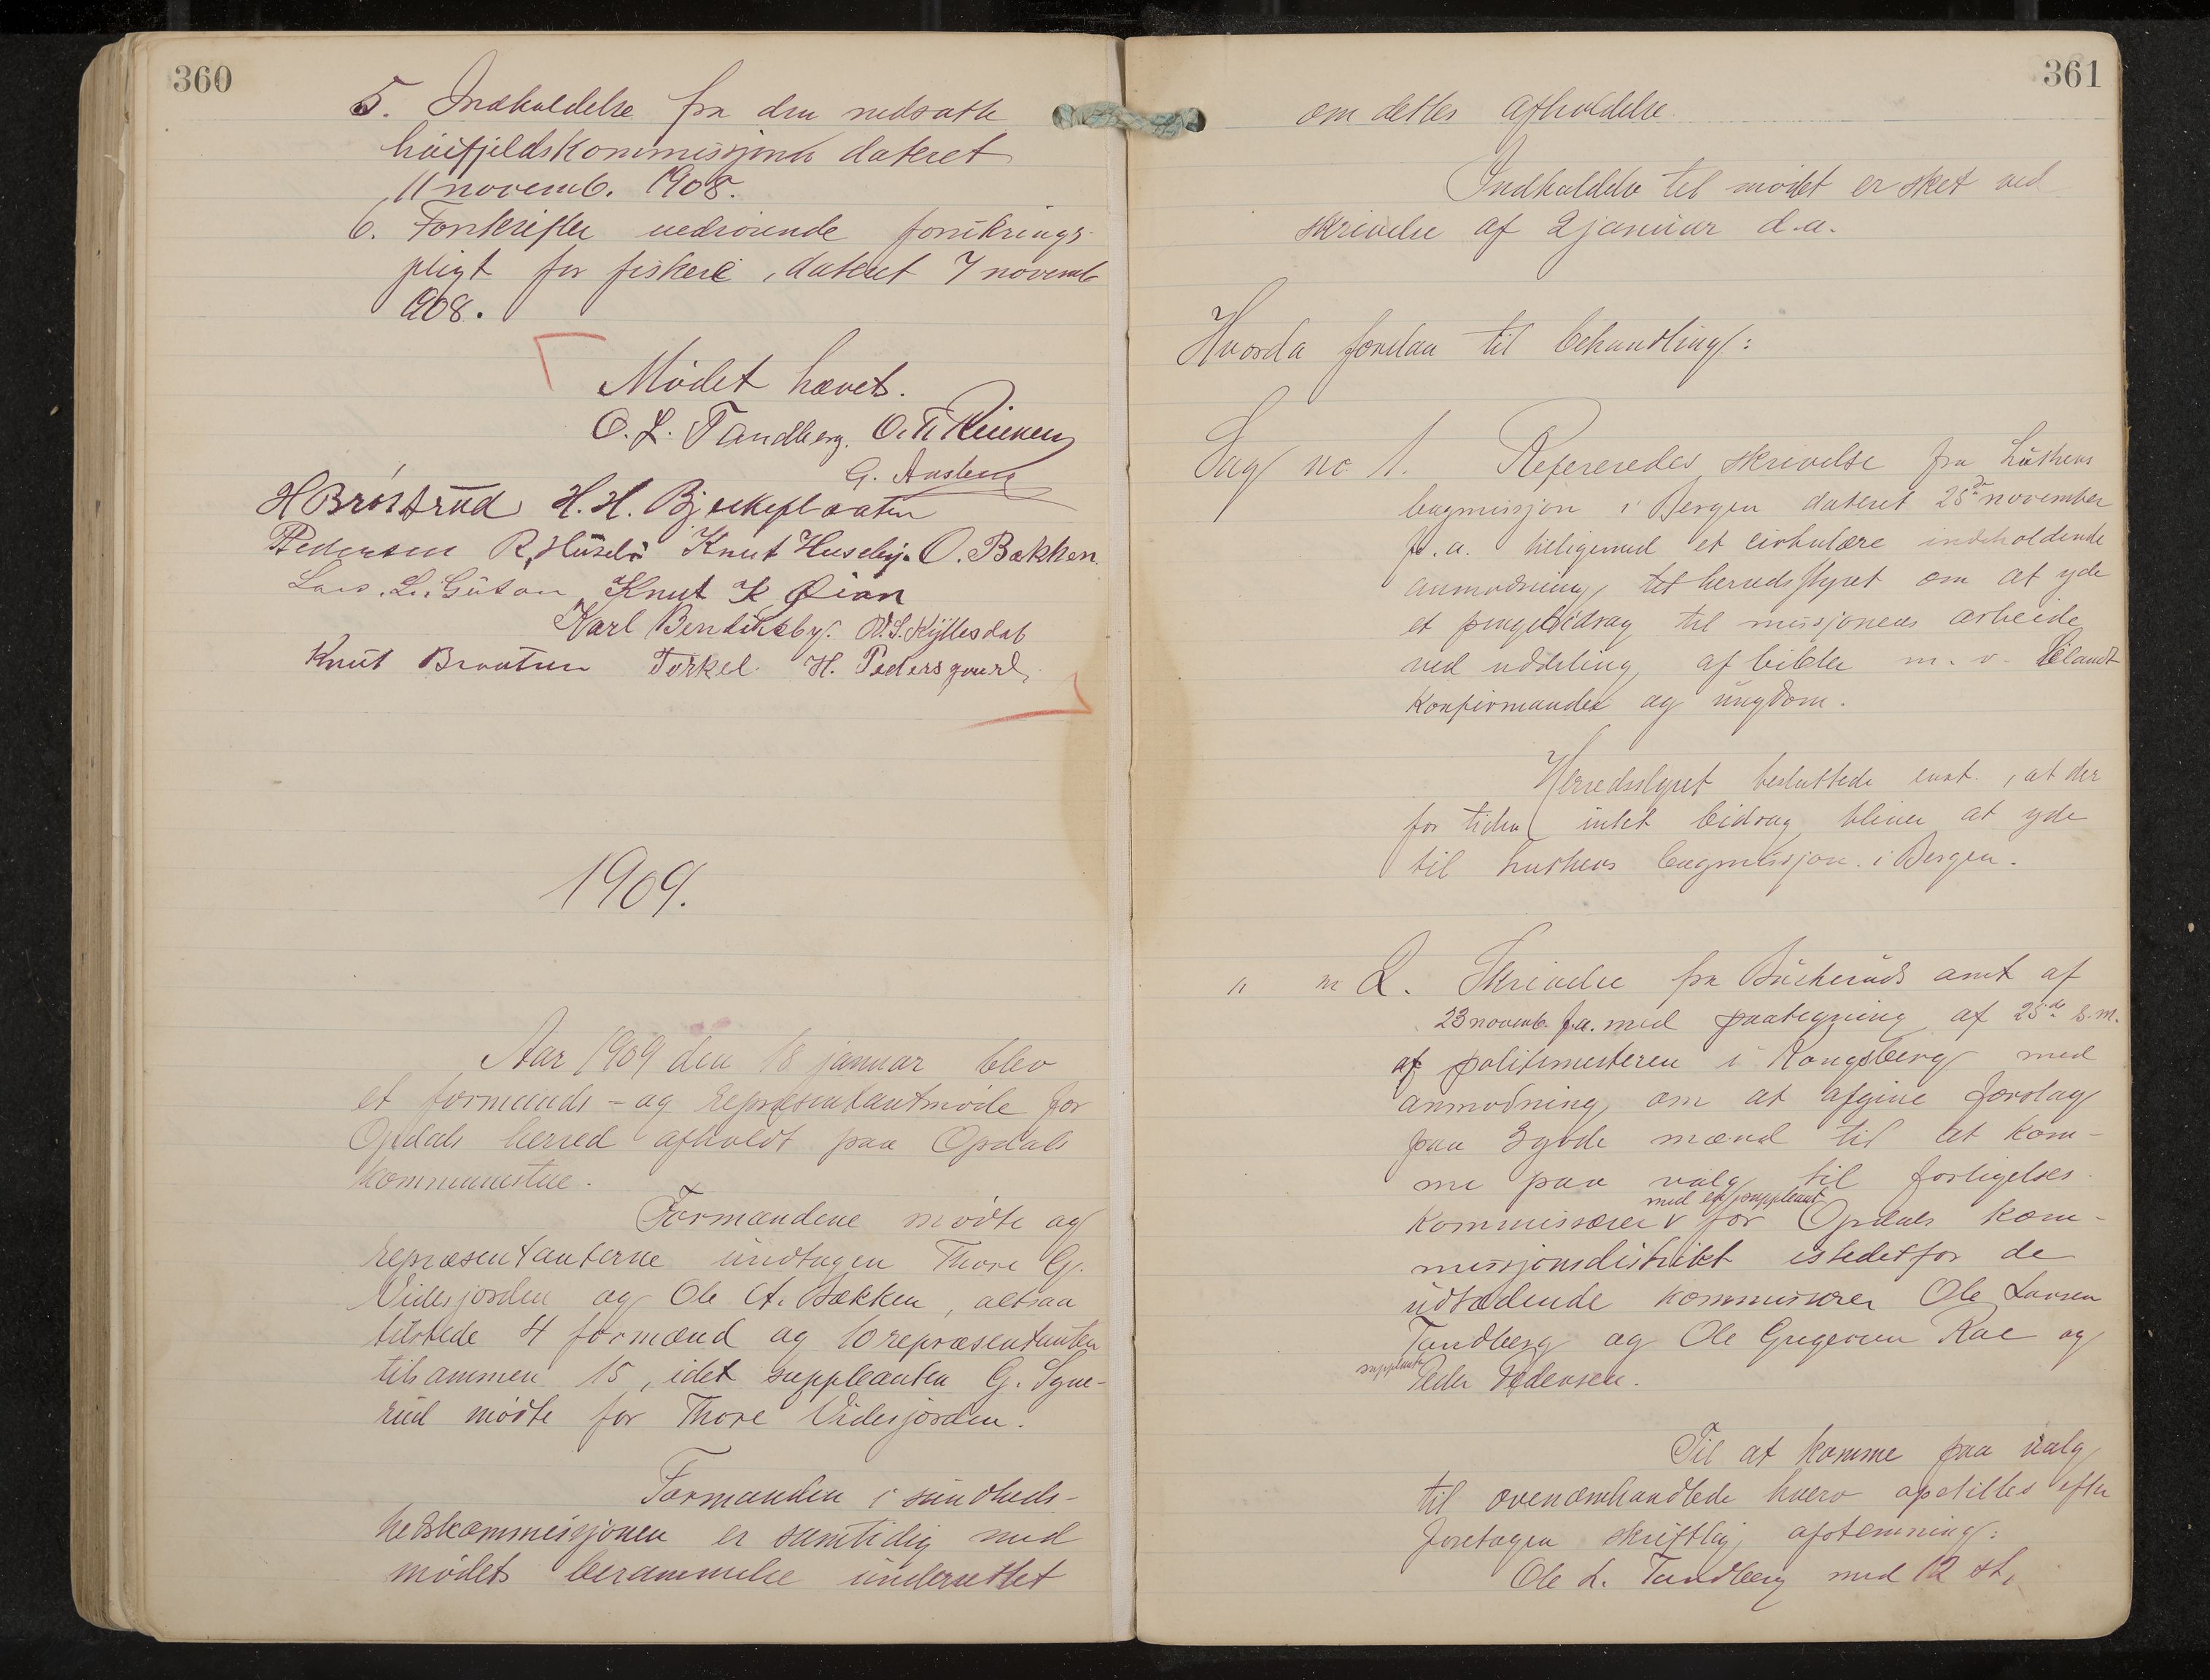 360
5. Indholdelse fra den nedsatte
høifjeldskommissjonen dateret
11 novemb. 1908.
6. Forskrifter vedrørende forsikrings-
pligt for fiskere, dateret 7 novemb
1908.
Mødet hævet.
O. L. Tandberg. O. T.
G.
H Brøstrud H. H. Bjerkeplaaten
P Pedersen R, Huseby Knut Huseby. O. Bækken.
Lars. L. Knut K Øian
Karl Bendiksby.
Knut Braaten Torkel. H. Pedersgaard,
1909.
Aar 1909 den 18 januar blev
et formands- og repræsentantmøde for
Opdals herred afholdt paa Opdals
kommunestue.
Formændene mødte og
repræsentanterne undtagen Thore G.
Videsjorden og Ole A. Bækken, altsaa
tilstede 4 formænd og 10 repræsentanter
tilsammen 15, idet suppleanten G. Syne-
rud mødte for Thore Videsjorden.
Formanden i sundheds-
hedskommissjonen er samtidig med
mødets berammelse underrettet
361
om dettes afholdelse.
Indkaldelse til mødet er sket ved
skrivelse af 2 januar d.a.
Hvorda forelaa til behandling:
Sag no 1. Refereredes skrivelse fra Luthers
bugmissjon i Bergen dateret 28de november
f.a. tilligemed et cirkulære indeholdende
anmodning til herredsstyret om at yde
et pengebidrag til missjonens arbeide
ved uddeling af bibler m. v. blandt
konfirmander og ungdom.
Herredsstyret besluttede enst., at der
for tiden intet bidrag bliver at yde
til Luthers bugmissjon i Bergen.
" " 2. Skrivelse fra Buskeruds amt af
23 novemb. f.a. med paategning af 25de s.m.
af politimesteren i Kongsberg med
anmodning om at afgive forslag
paa 3 gode mænd til at kom-
me paa valg til forligelses-
med en suppleant
kommissærer v for Opdals kom-
missjonsdistrikt istedetfor de
udtrædende kommissærer Ole Larsen
Tandberg og Ole Gregersen Rae og
suppleant
Peder Pedersen.
Til at komme paa valg
til ovenomhandlede hverv opstilles efter
foretagen skriftlig afstemning:
Ole L. Tandberg med 12 st,